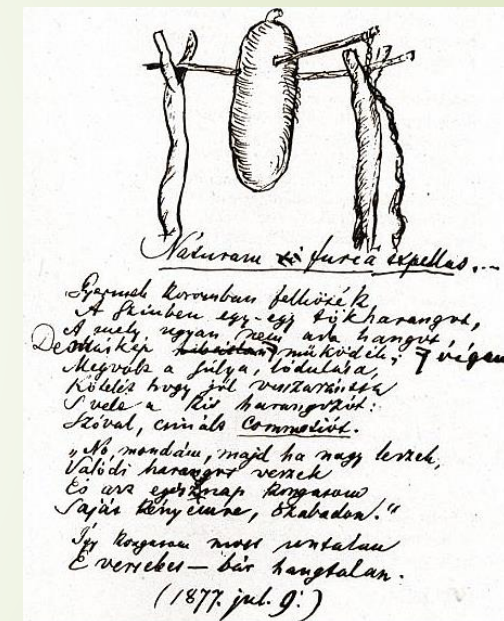 Naturam si furcâ expellas....
Gyermek koromban felköték
A Szinben egy-egy tökharangot,
A mely ugyan nem ada hangot,
De máskép működék;
végen
Megvolt a súlya, lódulása,
Kötelét hogy jól visszarántsa
S vele a kis harangozót:
Szóval, csinált Commotiót.
"No, mondám, majd ha nagy leszek,
Valódi harangot veszek
És azt egész nap kongatom
Saját kényemre, szabadon."
Így kongatom most untalan
E verseket — bár hangtalan.
(1877. jul. 9.)